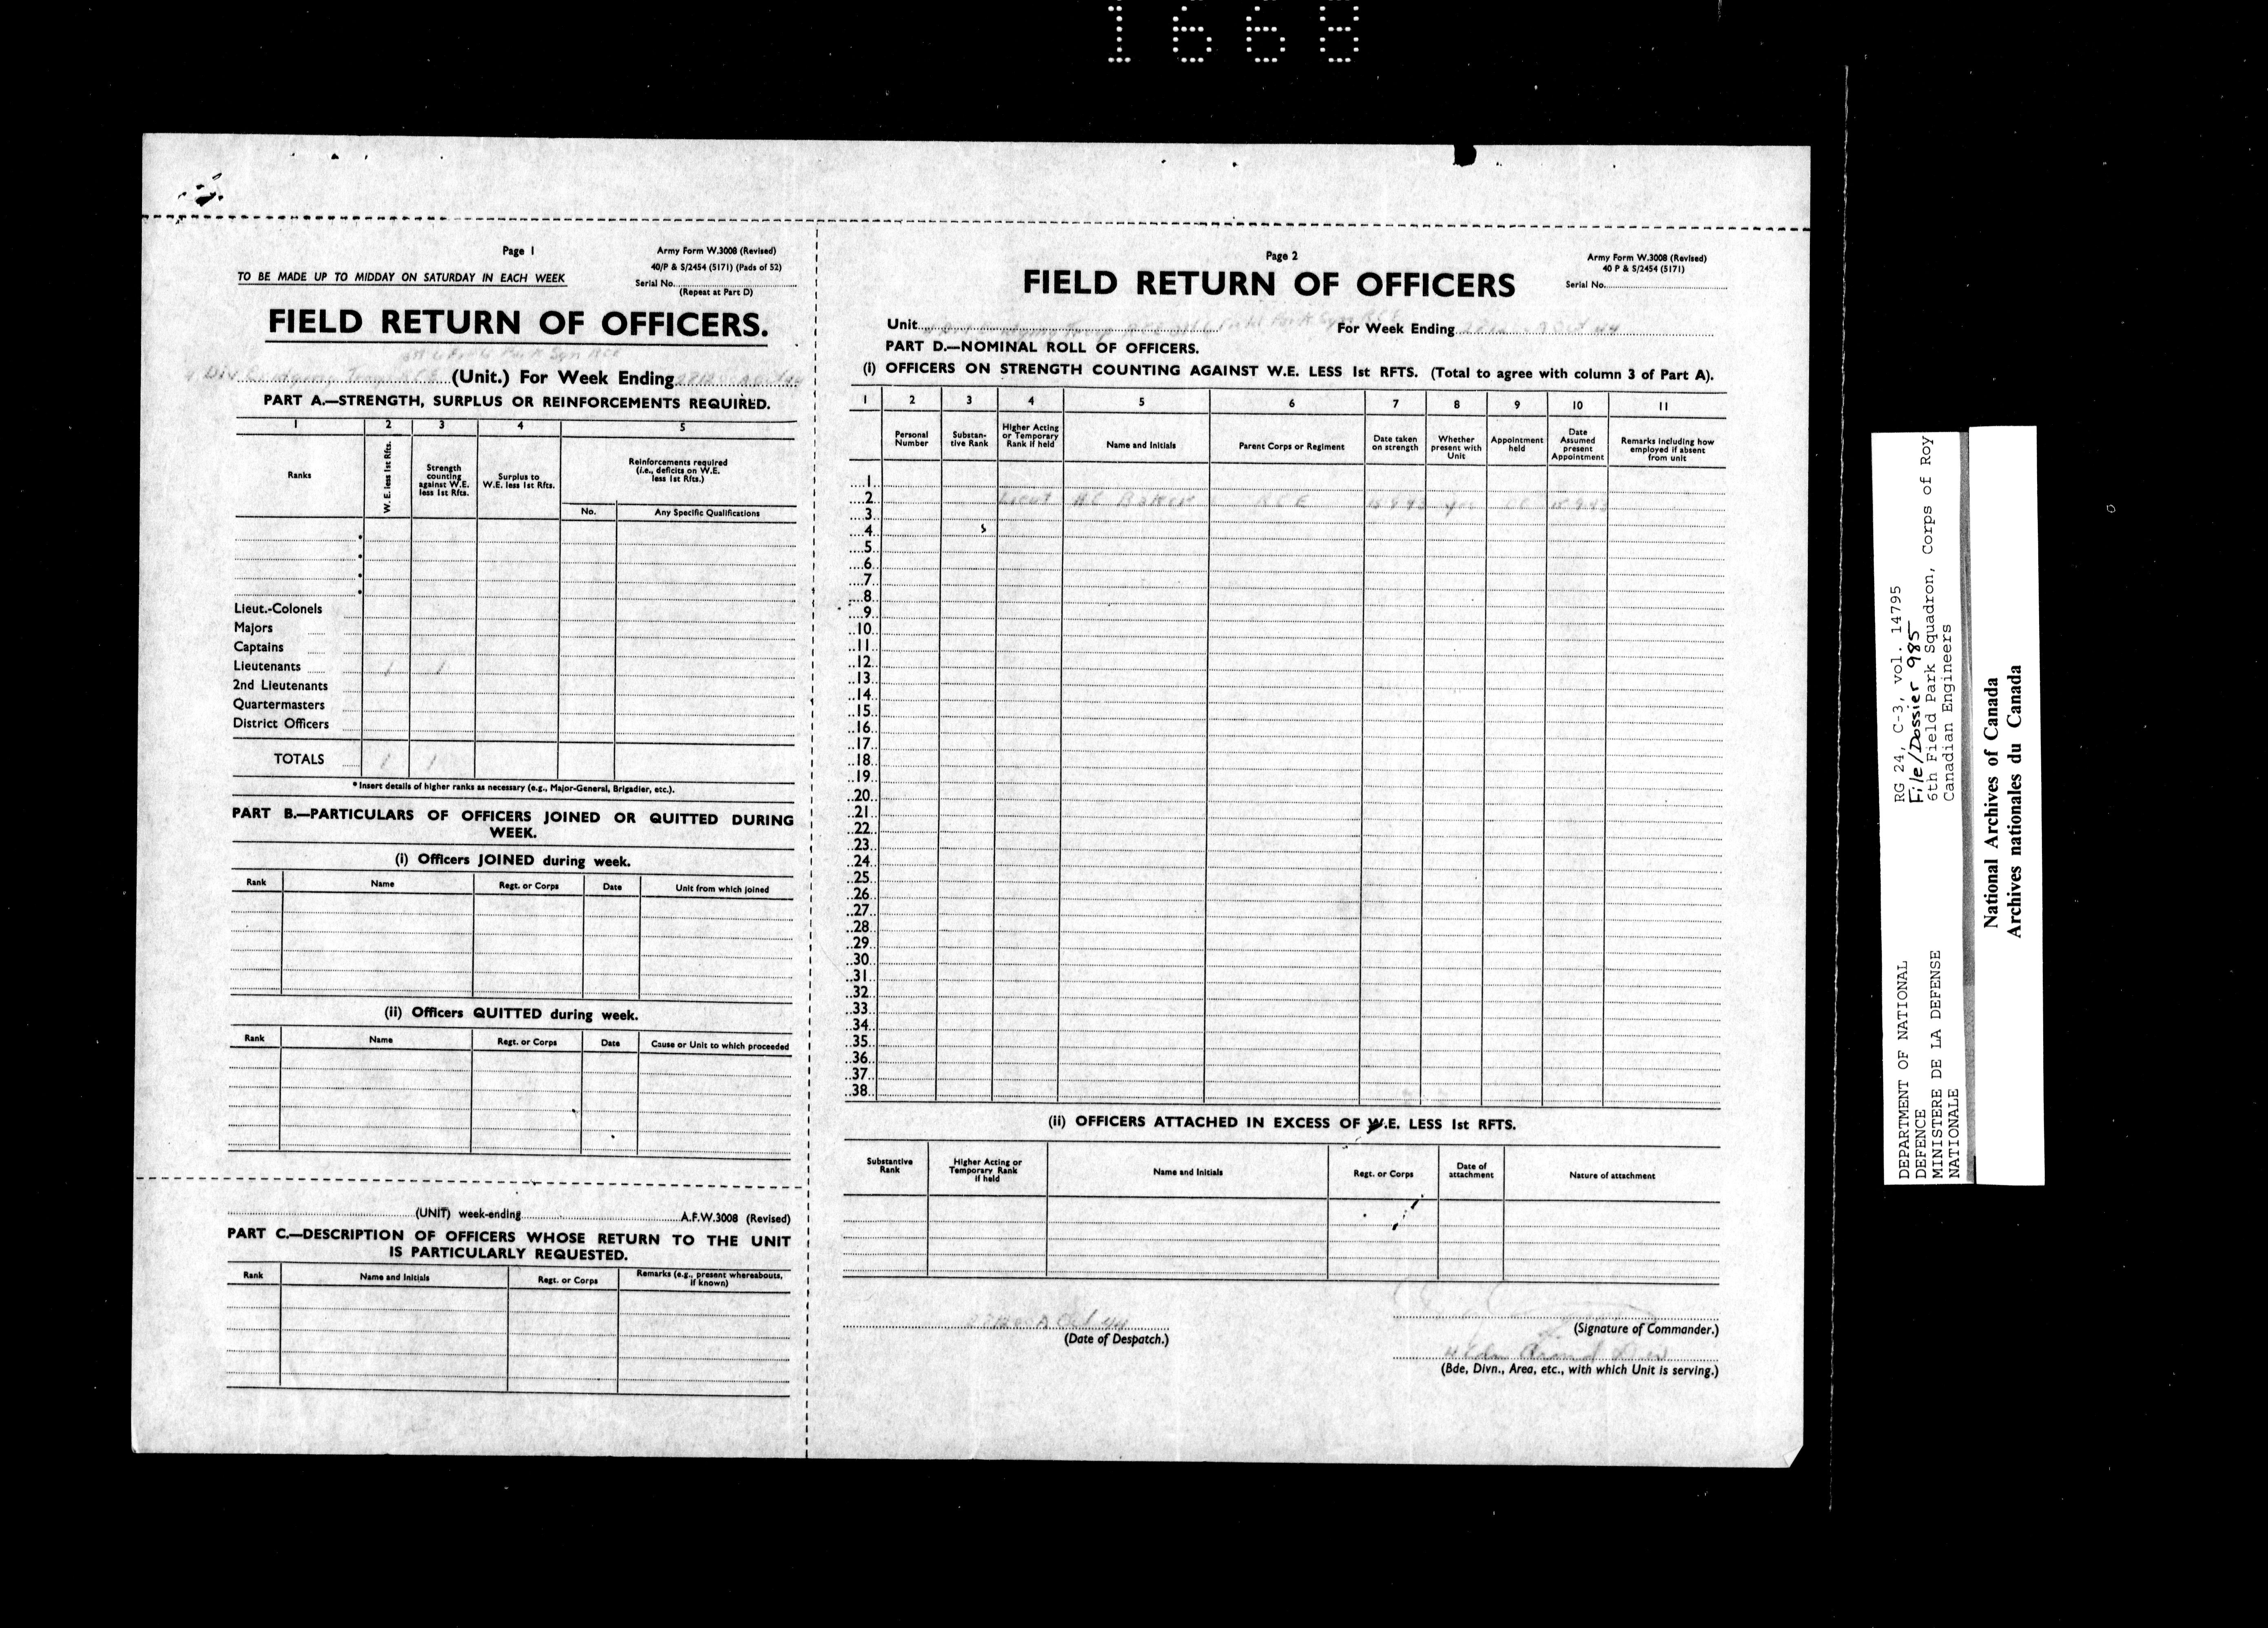 1668
Page 1
Army Form W.3008 (Revised)
40/P & S/2454 (5171) (Pads of 52)
TO BE MADE UP TO MIDDAY ON SATURDAY IN EACH WEEK
Serial No.
(Repeat at Part D)
FIELD RETURN OF OFFICERS.
6 Field Park Sqn RCE
4 Div Bridging Troop RCE (Unit.) For Week Ending Oct 44
PART A.—STRENGTH, SURPLUS OR REINFORCEMENTS REQUIRED.
1 2 3 4 5
Ranks
W. E. less 1st Rfts.
Strength counting against W.E. less 1st Rfts.
Surplus to W.E. less 1st Rfts.
Reinforcements required (i.e., deficits on W.E. less 1st Rfts.)
No. Any Specific Qualifications
*
*
*
*
Lieut.-Colonels
Majors
Captains
Lieutenants 1 1
2nd Lieutenants
Quartermasters
District Officers
TOTALS 1 1
* Insert details of higher ranks as necessary (e.g., Major-General, Brigadier, etc.).
PART B.—PARTICULARS OF OFFICERS JOINED OR QUITTED DURING
WEEK.
(i) Officers JOINED during week.
Rank Name Regt. or Corps Date Unit from which joined
(ii) Officers QUITTED during week.
Rank Name Regt. or Corps Date Cause or Unit to which proceeded
(UNIT) week-ending A.F.W.3008 (Revised)
PART C.—DESCRIPTION OF OFFICERS WHOSE RETURN TO THE UNIT
IS PARTICULARLY REQUESTED.
Rank Name and Initials Regt. or Corps Remarks (e.g., present whereabouts, if known)
Page 2
Army Form W.3008 (Revised)
40 P & S/2454 (5171)
FIELD RETURN OF OFFICERS
Serial No.
Unit 4 Div Bridging Troop RCE 6 Field Park Sqn RCE For Week Ending Oct 44
PART D.—NOMINAL ROLL OF OFFICERS.
(i) OFFICERS ON STRENGTH COUNTING AGAINST W.E. LESS 1st RFTS. (Total to agree with column 3 of Part A).
1 2 3 4 5 6 7 8 9 10 11
Personal Number
Substantive Rank
Higher Acting or Temporary Rank if held
Name and Initials
Parent Corps or Regiment
Date taken on strength
Whether present with Unit
Appointment held
Date Assumed present Appointment
Remarks including how employed if absent from unit
1
2 Lieut HC Baker RCE 15 9 43 yes OC 15 9 43
3
4
5
6
7
8
9
10
11
12
13
14
15
16
17
18
19
20
21
22
23
24
25
26
27
28
29
30
31
32
33
34
35
36
37
38
(ii) OFFICERS ATTACHED IN EXCESS OF W.E. LESS 1st RFTS.
Substantive Rank
Higher Acting or Temporary Rank if held
Name and Initials
Regt. or Corps
Date of attachment
Nature of attachment
Oct 44
(Date of Despatch.)
(Signature of Commander.)
4 Cdn Armd Div
(Bde, Divn., Area, etc., with which Unit is serving.)
DEPARTMENT OF NATIONAL
DEFENCE
MINISTERE DE LA DEFENSE
NATIONALE
RG 24, C-3, vol. 14795
File/Dossier 985
6th Field Park Squadron, Corps of Roy
Canadian Engineers
National Archives of Canada
Archives nationales du Canada